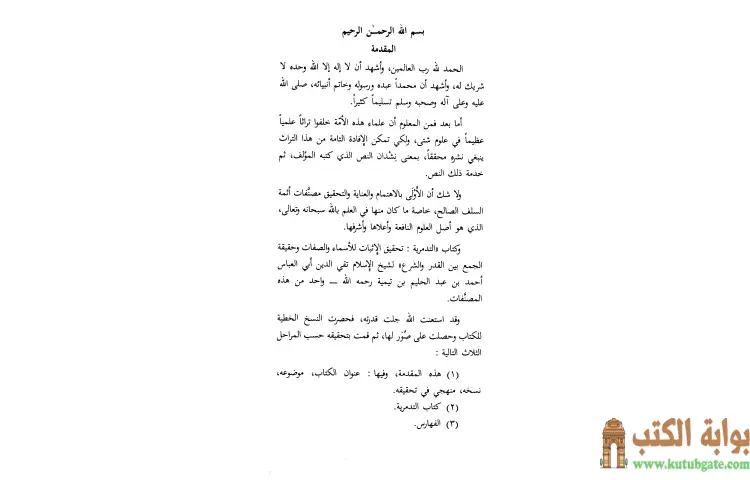 بسم الله الرحمـٰـن الرحيم
المقدمة
الحمد لله رب العالمين، وأشهد أن لا إله إلا الله وحده لا
شريك له، وأشهد أن محمداً عبده ورسوله وخاتم أنبيائه، صلى الله
عليه وعلى آله وصحبه وسلم تسليماً كثيراً.
أما بعد فمن المعلوم أن علماء هذه الأمّة خلفوا تراثاً علمياً
عظيماً في علوم شتى، ولكي تمكن الإفادة التامة من هذا التراث
ينبغي نشره محققاً، بمعنى نِشْدان النص الذي كتبه المؤلف، ثم
خدمة ذلك النص.
ولا شك أن الأَوْلَى بالاهتمام والعناية والتحقيق مصنَّفات أئمة
السلف الصالح، خاصة ما كان منها في العلم بالله سبحانه وتعالى،
الذي هو أصل العلوم النافعة وأعلاها وأشرفها.
وكتاب «التدمرية : تحقيق الإثبات للأسماء والصفات وحقيقة
الجمع بين القدر والشرع» لشيخ الإسلام تقي الدين أبي العباس
أحمد بن عبد الحليم بن تيمية رحمه الله — واحد من هذه
المصنَّفات.
وقد استعنت الله جلت قدرته، فحصرت النسخ الخطية
للكتاب وحصلت على صُوَر لها، ثم قمت بتحقيقه حسب المراحل
الثلاث التالية :
(١) هذه المقدمة، وفيها : عنوان الكتاب، موضوعه،
نسخه، منهجي في تحقيقه.
(٢) كتاب التدمرية.
(٣) الفهارس.
بوابة الكتب
www.kutubgate.com